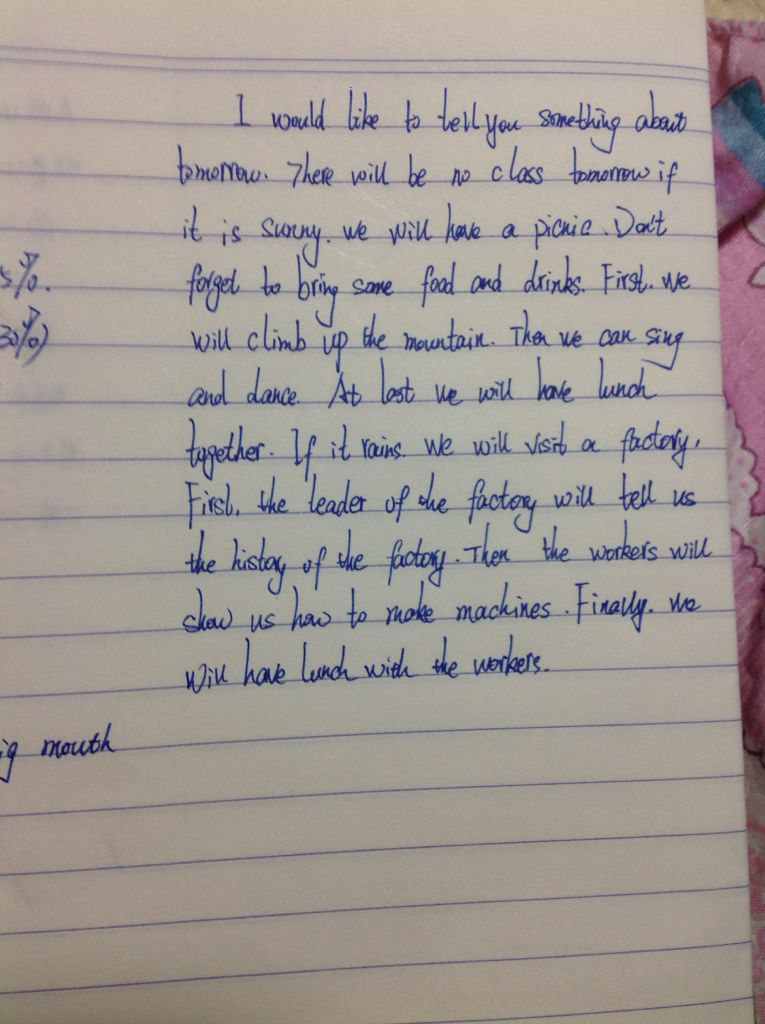 I would like to tell you something about
tomorrow. There will be no class tomorrow if
it is sunny. we will have a picnic. Don't
forget to bring some food and drinks. First. we
5%.
will climb up the mountain. Then we can sing
30%)
and dance. At last we will have lunch
together. If it rains. we will visit a factory.
First, the leader of the factory will tell us
the history of the factory. Then the workers will
show us how to make machines. Finally. we
will have lunch with the workers.
ig mouth